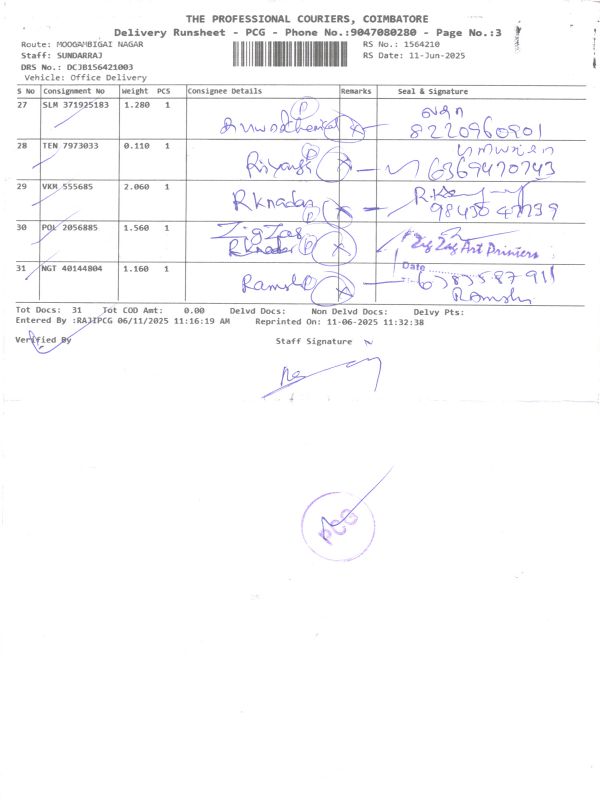 THE PROFESSIONAL COURIERS, COIMBATORE
Delivery Runsheet - PCG - Phone No.:9047080280 - Page No.:3
Route: MOOGAMBIGAI NAGAR RS No.: 1564210
Staff: SUNDARRAJ RS Date: 11-Jun-2025
DRS No.: DCJB156421003
Vehicle: Office Delivery
S No Consignment No Weight PCS Consignee Details Remarks Seal & Signature
27 SLM 371925183 1.280 1 P X
8220960901
28 TEN 7973033 0.110 1 P X 6369470743
29 VKM 555685 2.060 1 RKnadar P X
9843047739
30 POL 2056885 1.560 1 Zig Zag P X Zig Zag Art Printers
RKnadar
Date
31 NGT 40144804 1.160 1 Ramesh X 6383587911
Ramesh
Tot Docs: 31 Tot COD Amt: 0.00 Delvd Docs: Non Delvd Docs: Delvy Pts:
Entered By :RAJIPCG 06/11/2025 11:16:19 AM Reprinted On: 11-06-2025 11:32:38
Verified By Staff Signature
PCG